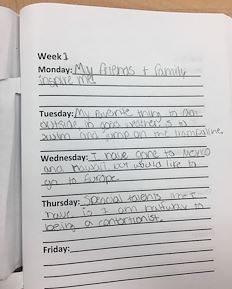 Week 1
Monday: My friends + family
inspire me!
Tuesday: My favorite thing to do
outside in good weather is to
swim and jump on the trampoline.
Wednesday: I have gone to Mexico
and Hawaii but would like to
go to Europe.
Thursday: Special talents that I
have is I am halfway to
being a contortionist.
Friday: